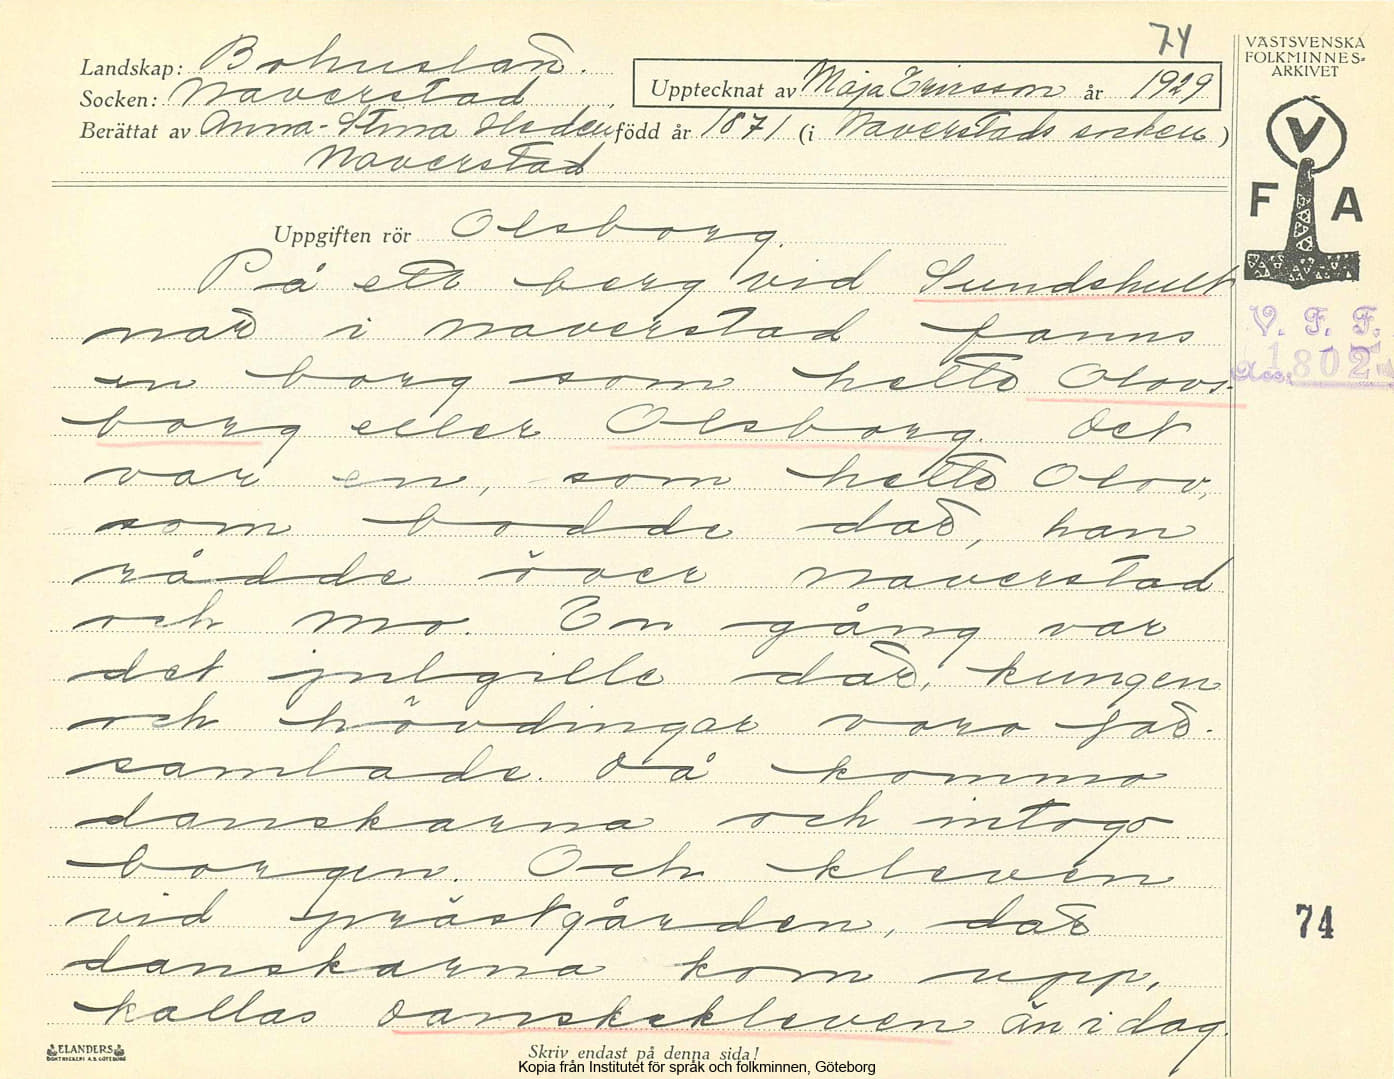 74
Landskap: Bohuslän.
Socken: Naverstad
Upptecknat av Maja Ericsson år 1929
Berättat av Anna-Stina Heden född år 1871 (i Naverstads socken)
Naverstad
VÄSTSVENSKA
FOLKMINNES-
ARKIVET
V
F A
V. F. F.
Acc. 1802
Uppgiften rör Olsborg.
På ett berg vid Sundshult
när i Naverstad fanns
en borg som hette Olovs-
borg eller Olsborg. Det
var en, som hette Olov,
som bodde där, han
rådde över Naverstad
och Mo. En gång var
det julgille där, kungen
och hövdingar voro för-
samlade. Då kommo
danskarna och intogo
borgen. Och kleven
vid prästgården, där
danskarna kom upp,
kallas Danskekleven än i dag.
74
ELANDERS
BOKTRYCKERI A.B. GÖTEBORG
Skriv endast på denna sida!
Kopia från Institutet för språk och folkminnen, Göteborg